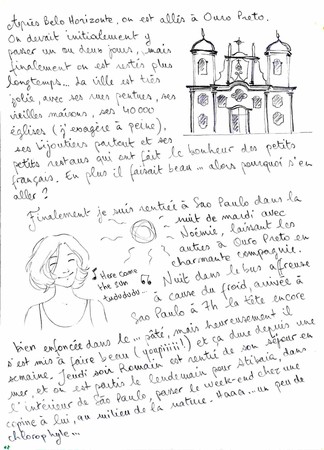 Après Belo Horizonte, on est allés à Ouro Preto.
On devait initialement y
passer un ou deux jours, mais
finalement on est restés plus
longtemps... La ville est très
jolie, avec ses rues pentues, ses
vieilles maisons, ses 40 000
églises (j'exagère à peine),
ses bijoutiers partout et ses
petits restaus qui ont fait le bonheur des petits
français. En plus il faisait beau... alors pourquoi s'en
aller ?
Finalement je suis rentrée à Sao Paulo dans la
nuit de mardi avec
Noémie, laissant les
autres à Ouro Preto en
charmante compagnie.
Here come
the sun
tudududu...
Nuit dans le bus affreuse
à cause du froid, arrivée à
Sao Paulo à 7h la tête encore
bien enfoncée dans le... pâté, mais heureusement il
s'est mis à faire beau (youpiiiii!) et ça dure depuis une
semaine. Jeudi soir Romain est rentré de son séjour en
mer, et on est partis le lendemain pour Atibaia, dans
l'intérieur de São Paulo, passer le week-end chez une
copine à lui, au milieu de la nature. Haaa... un peu de
chlorophyle...